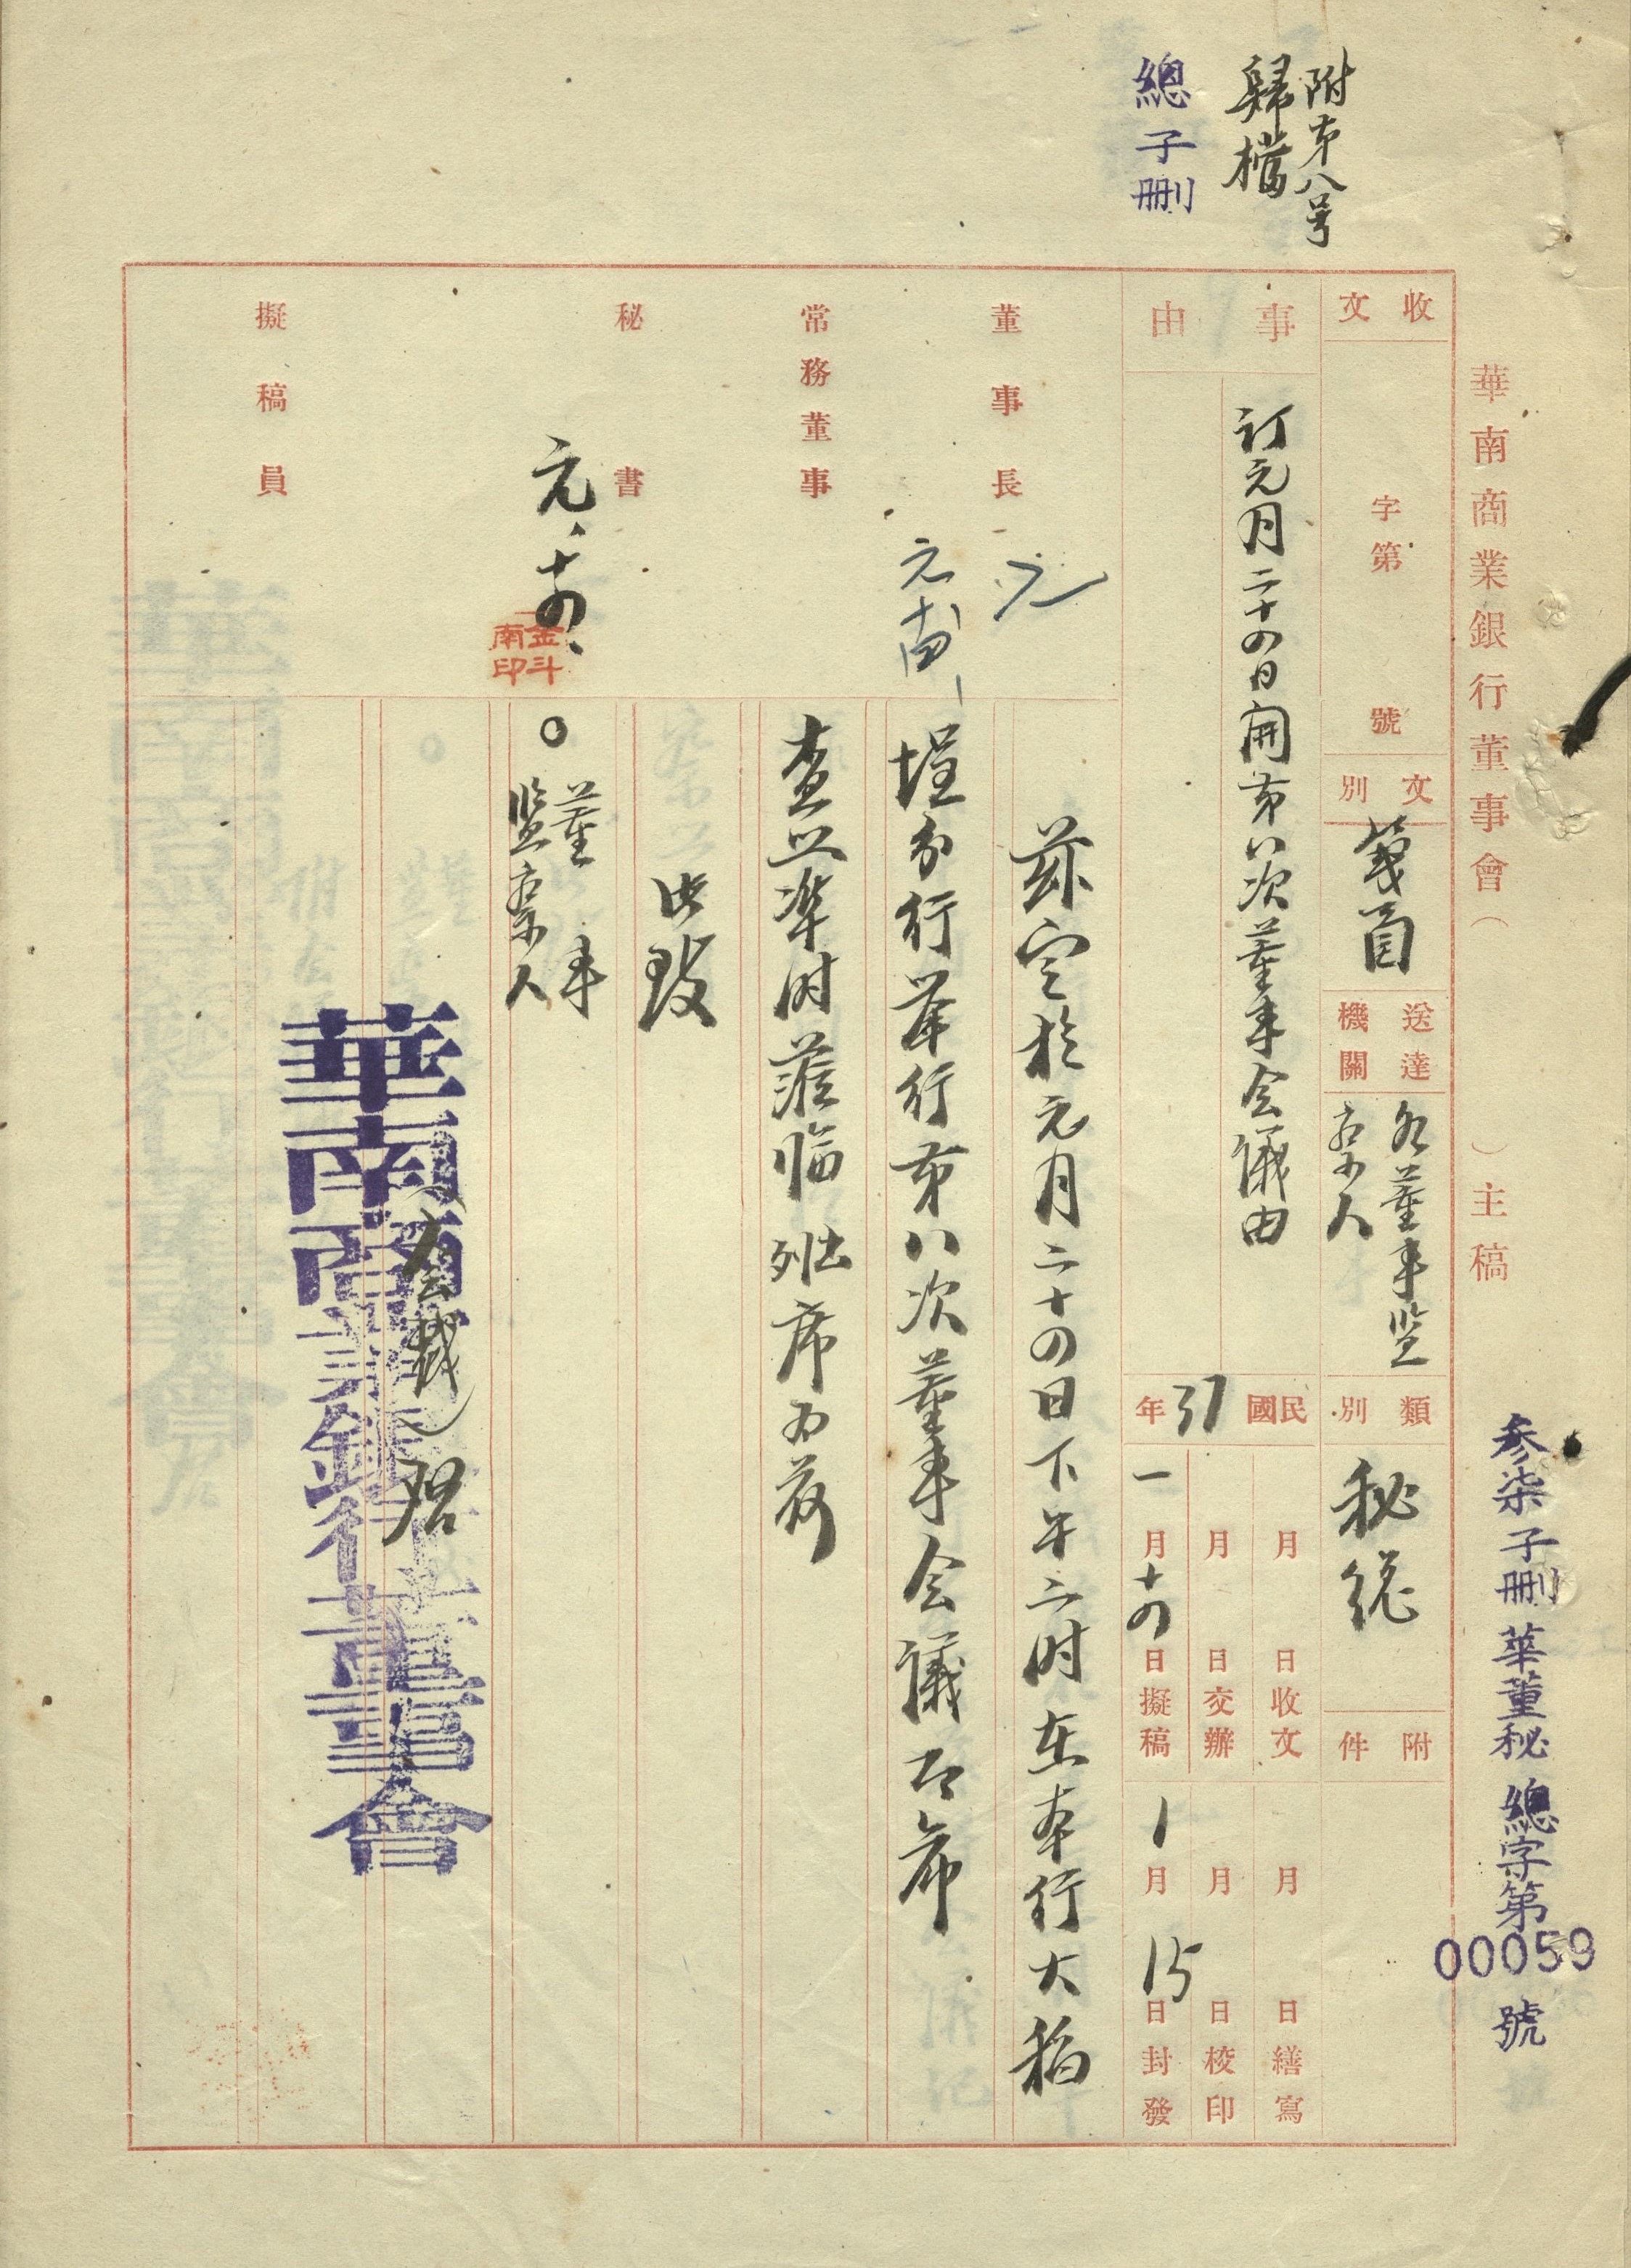 附第八号
歸檔
總子刪
華南商業銀行董事會（　　）主稿
參柒子刪華董秘總字第00059號
收文　字第　號
文別　箋函
送達機關　各董事監察人
類別　秘總
附件
事由　訂元月二十四日開第八次董事会議由
民國37年
月　日收文
月　日交辦
一月十四日擬稿
月　日繕寫
月　日校印
1月15日封發
董事長
常務董事
秘書　元、十四、
金斗南印
擬稿員
茲定於元月二十四日下午二时在本行大稻
埕分行举行第八次董事会議即希
查照準时蒞臨出列席为荷
此致
○董事
監察人
（会戳）啓
華南商業銀行董事會